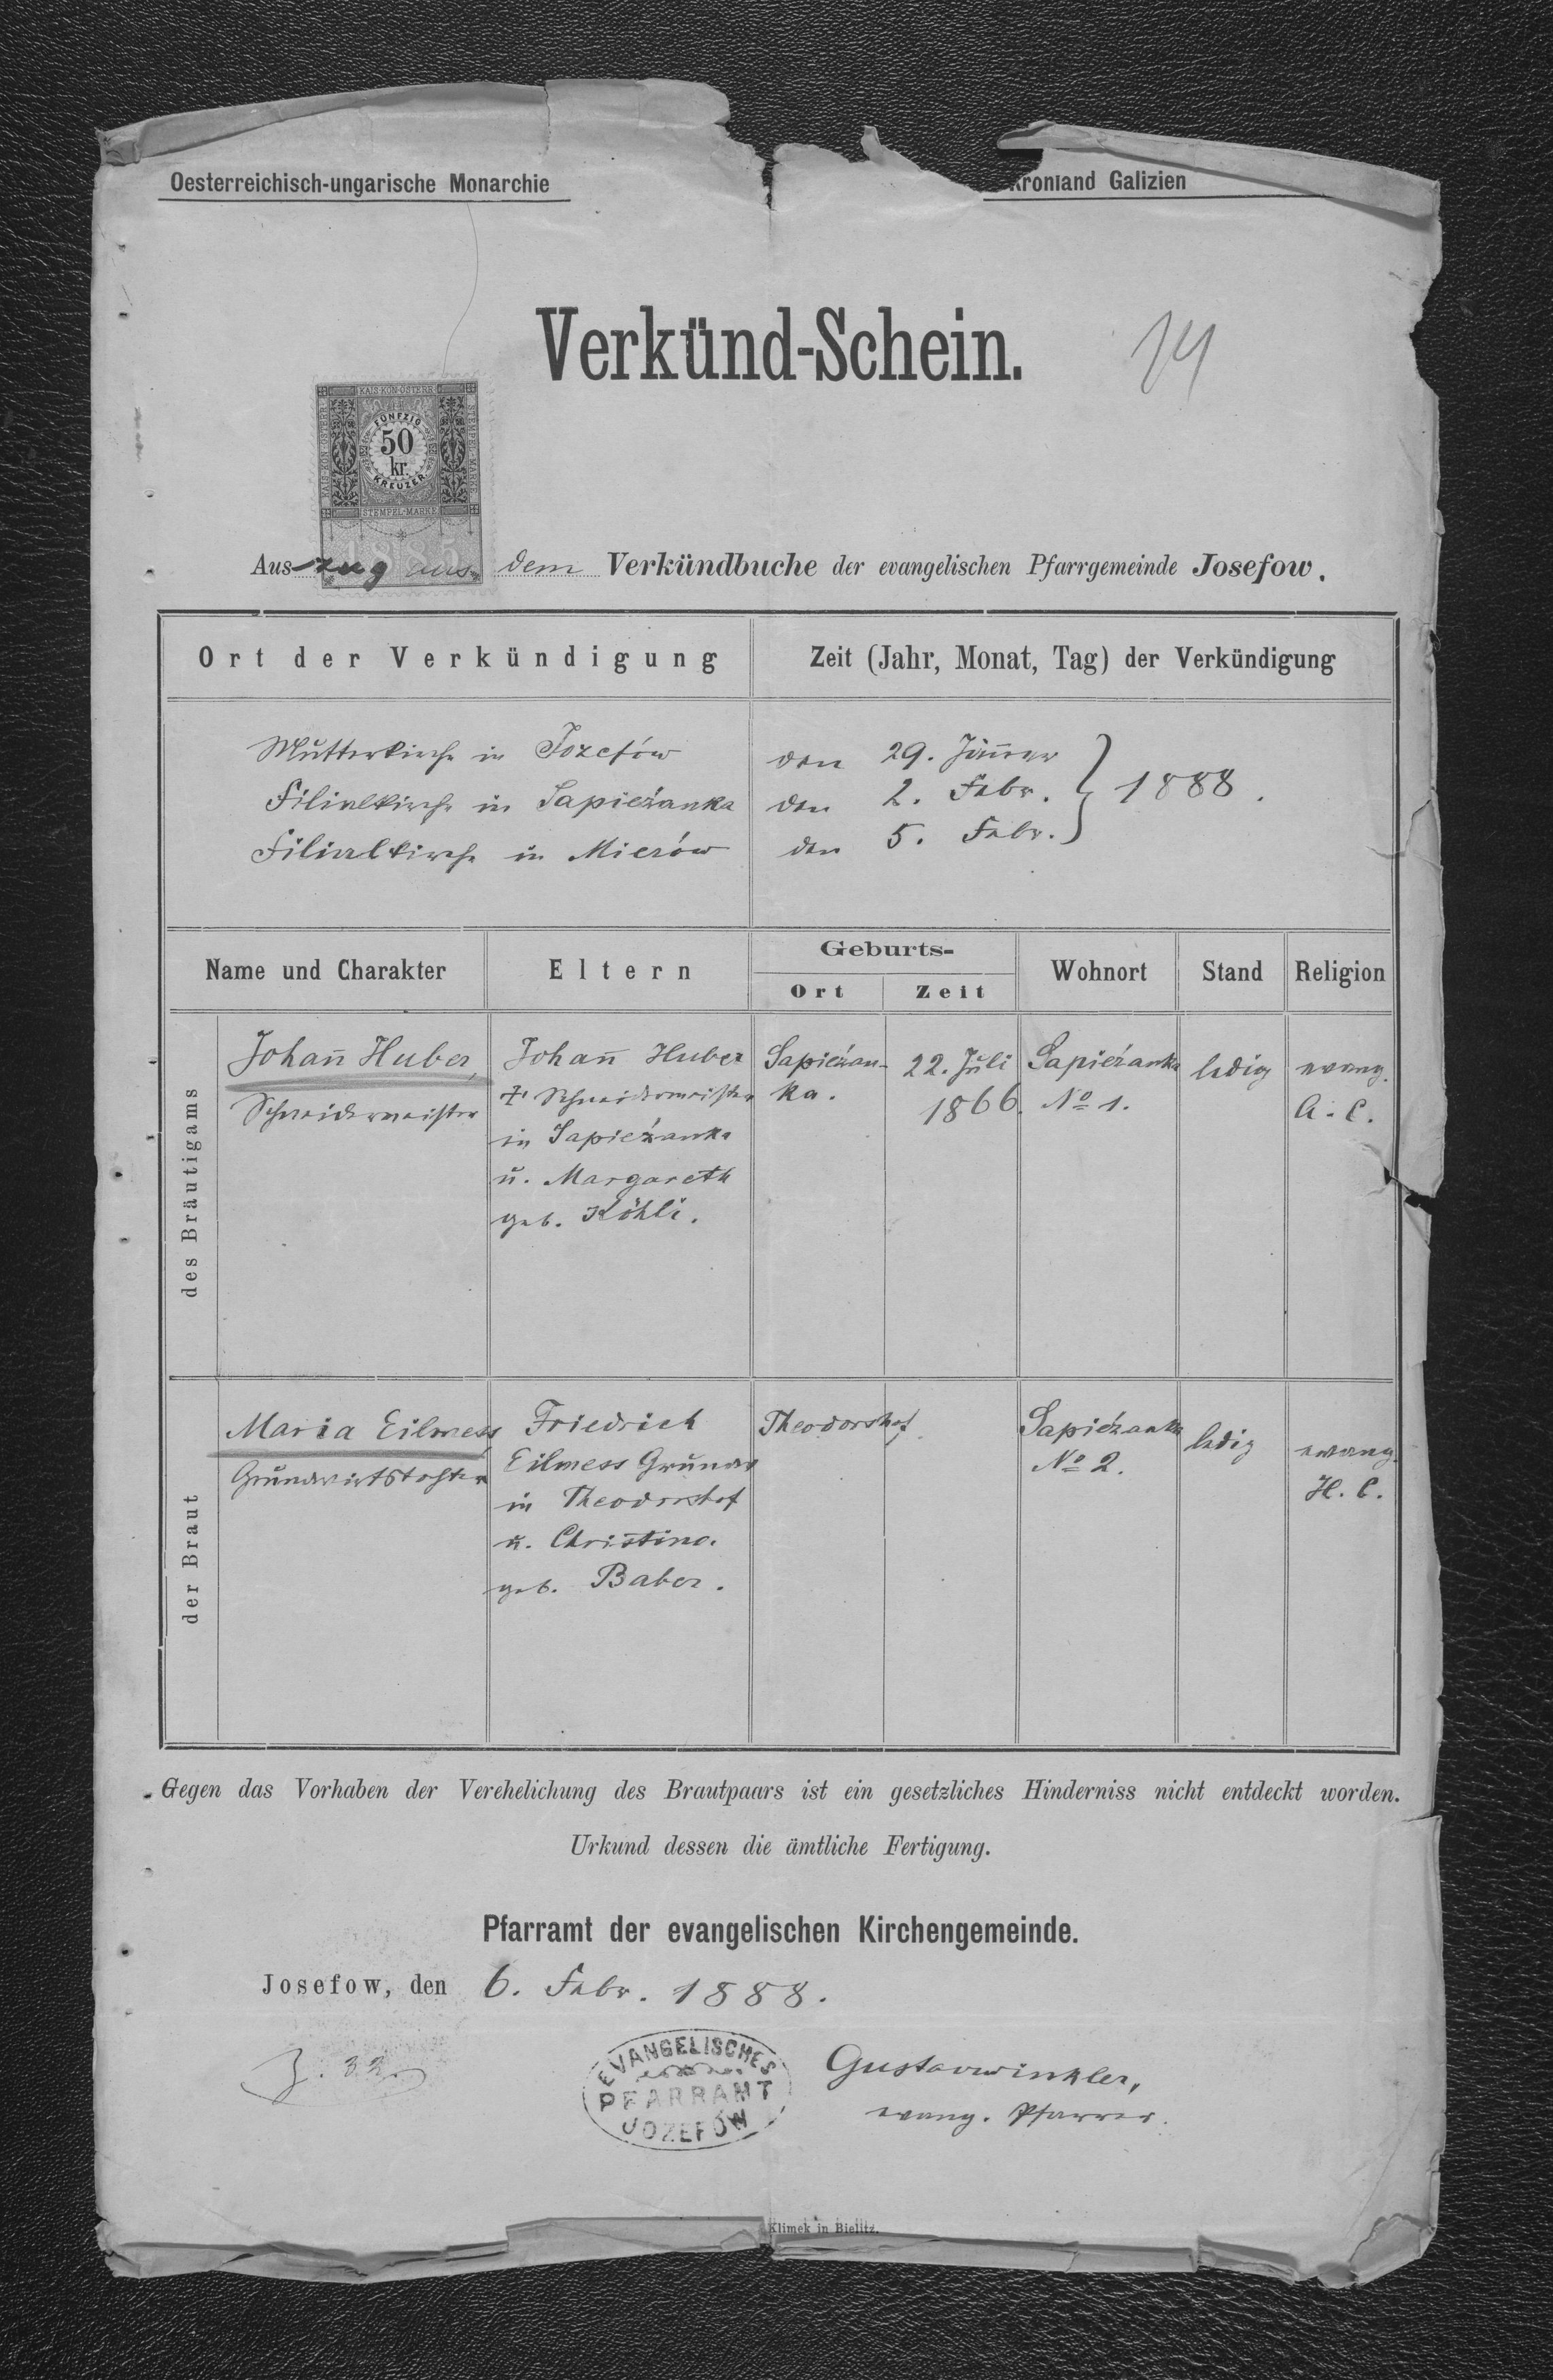 Oesterreichisch-ungarische Monarchie
Kronland Galizien
Verkünd-Schein.
14
KAIS·KÖN·ÖSTERR
FÜNFZIG
50
kr.
KREUZER
STEMPEL-MARKE
1885
Auszug aus dem Verkündbuche der evangelischen Pfarrgemeinde Josefow.
Ort der Verkündigung
Zeit (Jahr, Monat, Tag) der Verkündigung
Mutterkirche in Józefów den 29. Jänner
Filialkirche in Sapieżanka den 2. Febr. } 1888.
Filialkirche in Mierów den 5. Febr.
Name und Charakter
Eltern
Geburts-
Ort
Zeit
Wohnort
Stand
Religion
des Bräutigams
Johañ Huber,
Schneidermeister
Johañ Huber
† Schneidermeister
in Sapieżanka
u. Margareth
geb. Köhli.
Sapieżan-
ka.
22. Juli
1866.
Sapieżanka
No 1.
ledig
evang.
A. C.
der Braut
Maria Eilmess
Grundwirtstochter
Friedrich
Eilmess Grundw
in Theodorshof
u. Christina
geb. Baber.
Theodorshof
Sapieżanka
No 2.
ledig
evang.
H. C.
Gegen das Vorhaben der Verehelichung des Brautpaars ist ein gesetzliches Hinderniss nicht entdeckt worden.
Urkund dessen die ämtliche Fertigung.
Pfarramt der evangelischen Kirchengemeinde.
Josefow, den 6. Febr. 1888.
Z. 33.
EVANGELISCHES
PFARRAMT
JÓZEFÓW
Gustav Winkler,
evang. Pfarrer.
Klimek in Bielitz.